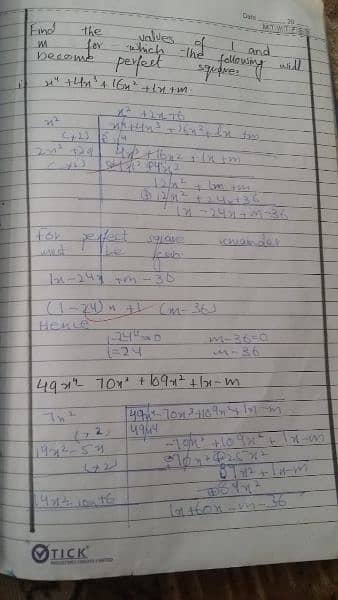 Date 20
M T W T F S S
Find the values of l and
m for which the following will
become perfect squares
x⁴ + 4x³ + 16x² + lx + m
x² + 2x + 6
x²
x⁴ + 4x³ + 16x² + lx + m
x⁴
4x³ + 16x² + lx + m
4x³ + 4x²
12x² + lx + m
12x² + 24x + 36
lx - 24x + m - 36
For perfect square remainder
must be
lx - 24x + m - 36
(l - 24)x + (m - 36)
Hence
l - 24 = 0 m - 36 = 0
l = 24 m = 36
49x⁴ 70x³ + 109x² + lx - m
7x²
49x⁴ - 70x³ + 109x² + lx - m
49x⁴
(x2)
-70x³ + 109x² + lx - m
14x² - 5x
70x³ + 25x²
(x2)
84x² + lx - m
84x²
14x² - 10x + 6
lx + 60x - m - 36
TICK